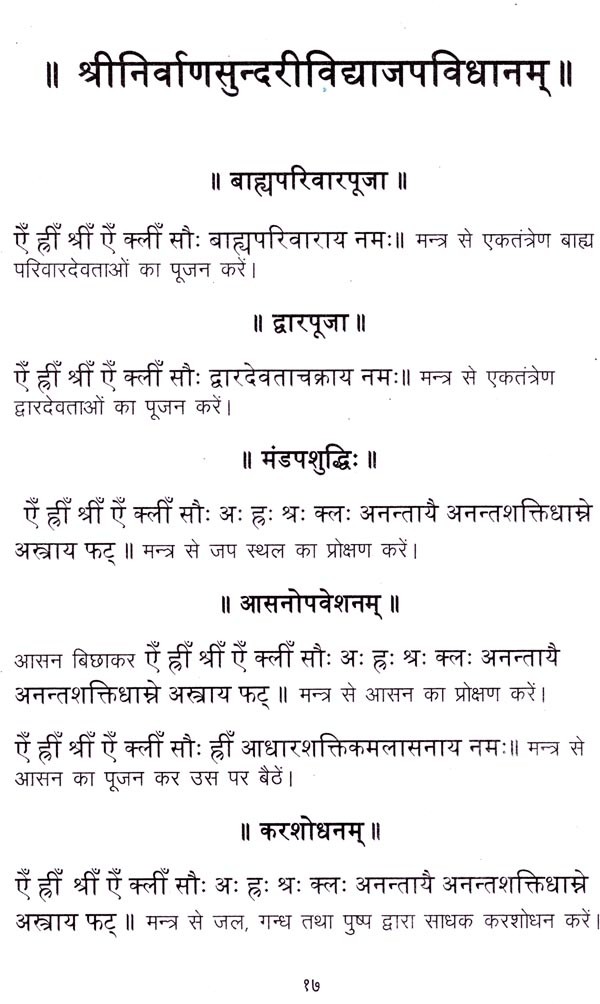 ॥ श्रीनिर्वाणसुन्दरीविद्याजपविधानम् ॥
॥ बाह्यपरिवारपूजा ॥
ऐँ ह्रीँ श्रीँ ऐँ क्लीँ सौः बाह्यपरिवाराय नमः॥ मन्त्र से एकतंत्रेण बाह्य
परिवारदेवताओं का पूजन करें।
॥ द्वारपूजा ॥
ऐँ ह्रीँ श्रीँ ऐँ क्लीँ सौः द्वारदेवताचक्राय नमः॥ मन्त्र से एकतंत्रेण
द्वारदेवताओं का पूजन करें।
॥ मंडपशुद्धिः ॥
ऐँ ह्रीँ श्रीँ ऐँ क्लीँ सौः अः ह्रः श्रः क्लः अनन्तायै अनन्तशक्तिधाम्ने
अस्त्राय फट् ॥ मन्त्र से जप स्थल का प्रोक्षण करें।
॥ आसनोपवेशनम् ॥
आसन बिछाकर ऐँ ह्रीँ श्रीँ ऐँ क्लीँ सौः अः ह्रः श्रः क्लः अनन्तायै
अनन्तशक्तिधाम्ने अस्त्राय फट् ॥ मन्त्र से आसन का प्रोक्षण करें।
ऐँ ह्रीँ श्रीँ ऐँ क्लीँ सौः ह्रीँ आधारशक्तिकमलासनाय नमः॥ मन्त्र से
आसन का पूजन कर उस पर बैठें।
॥ करशोधनम् ॥
ऐँ ह्रीँ श्रीँ ऐँ क्लीँ सौः अः ह्रः श्रः क्लः अनन्तायै अनन्तशक्तिधाम्ने
अस्त्राय फट् ॥ मन्त्र से जल, गन्ध तथा पुष्प द्वारा साधक करशोधन करें।
१७